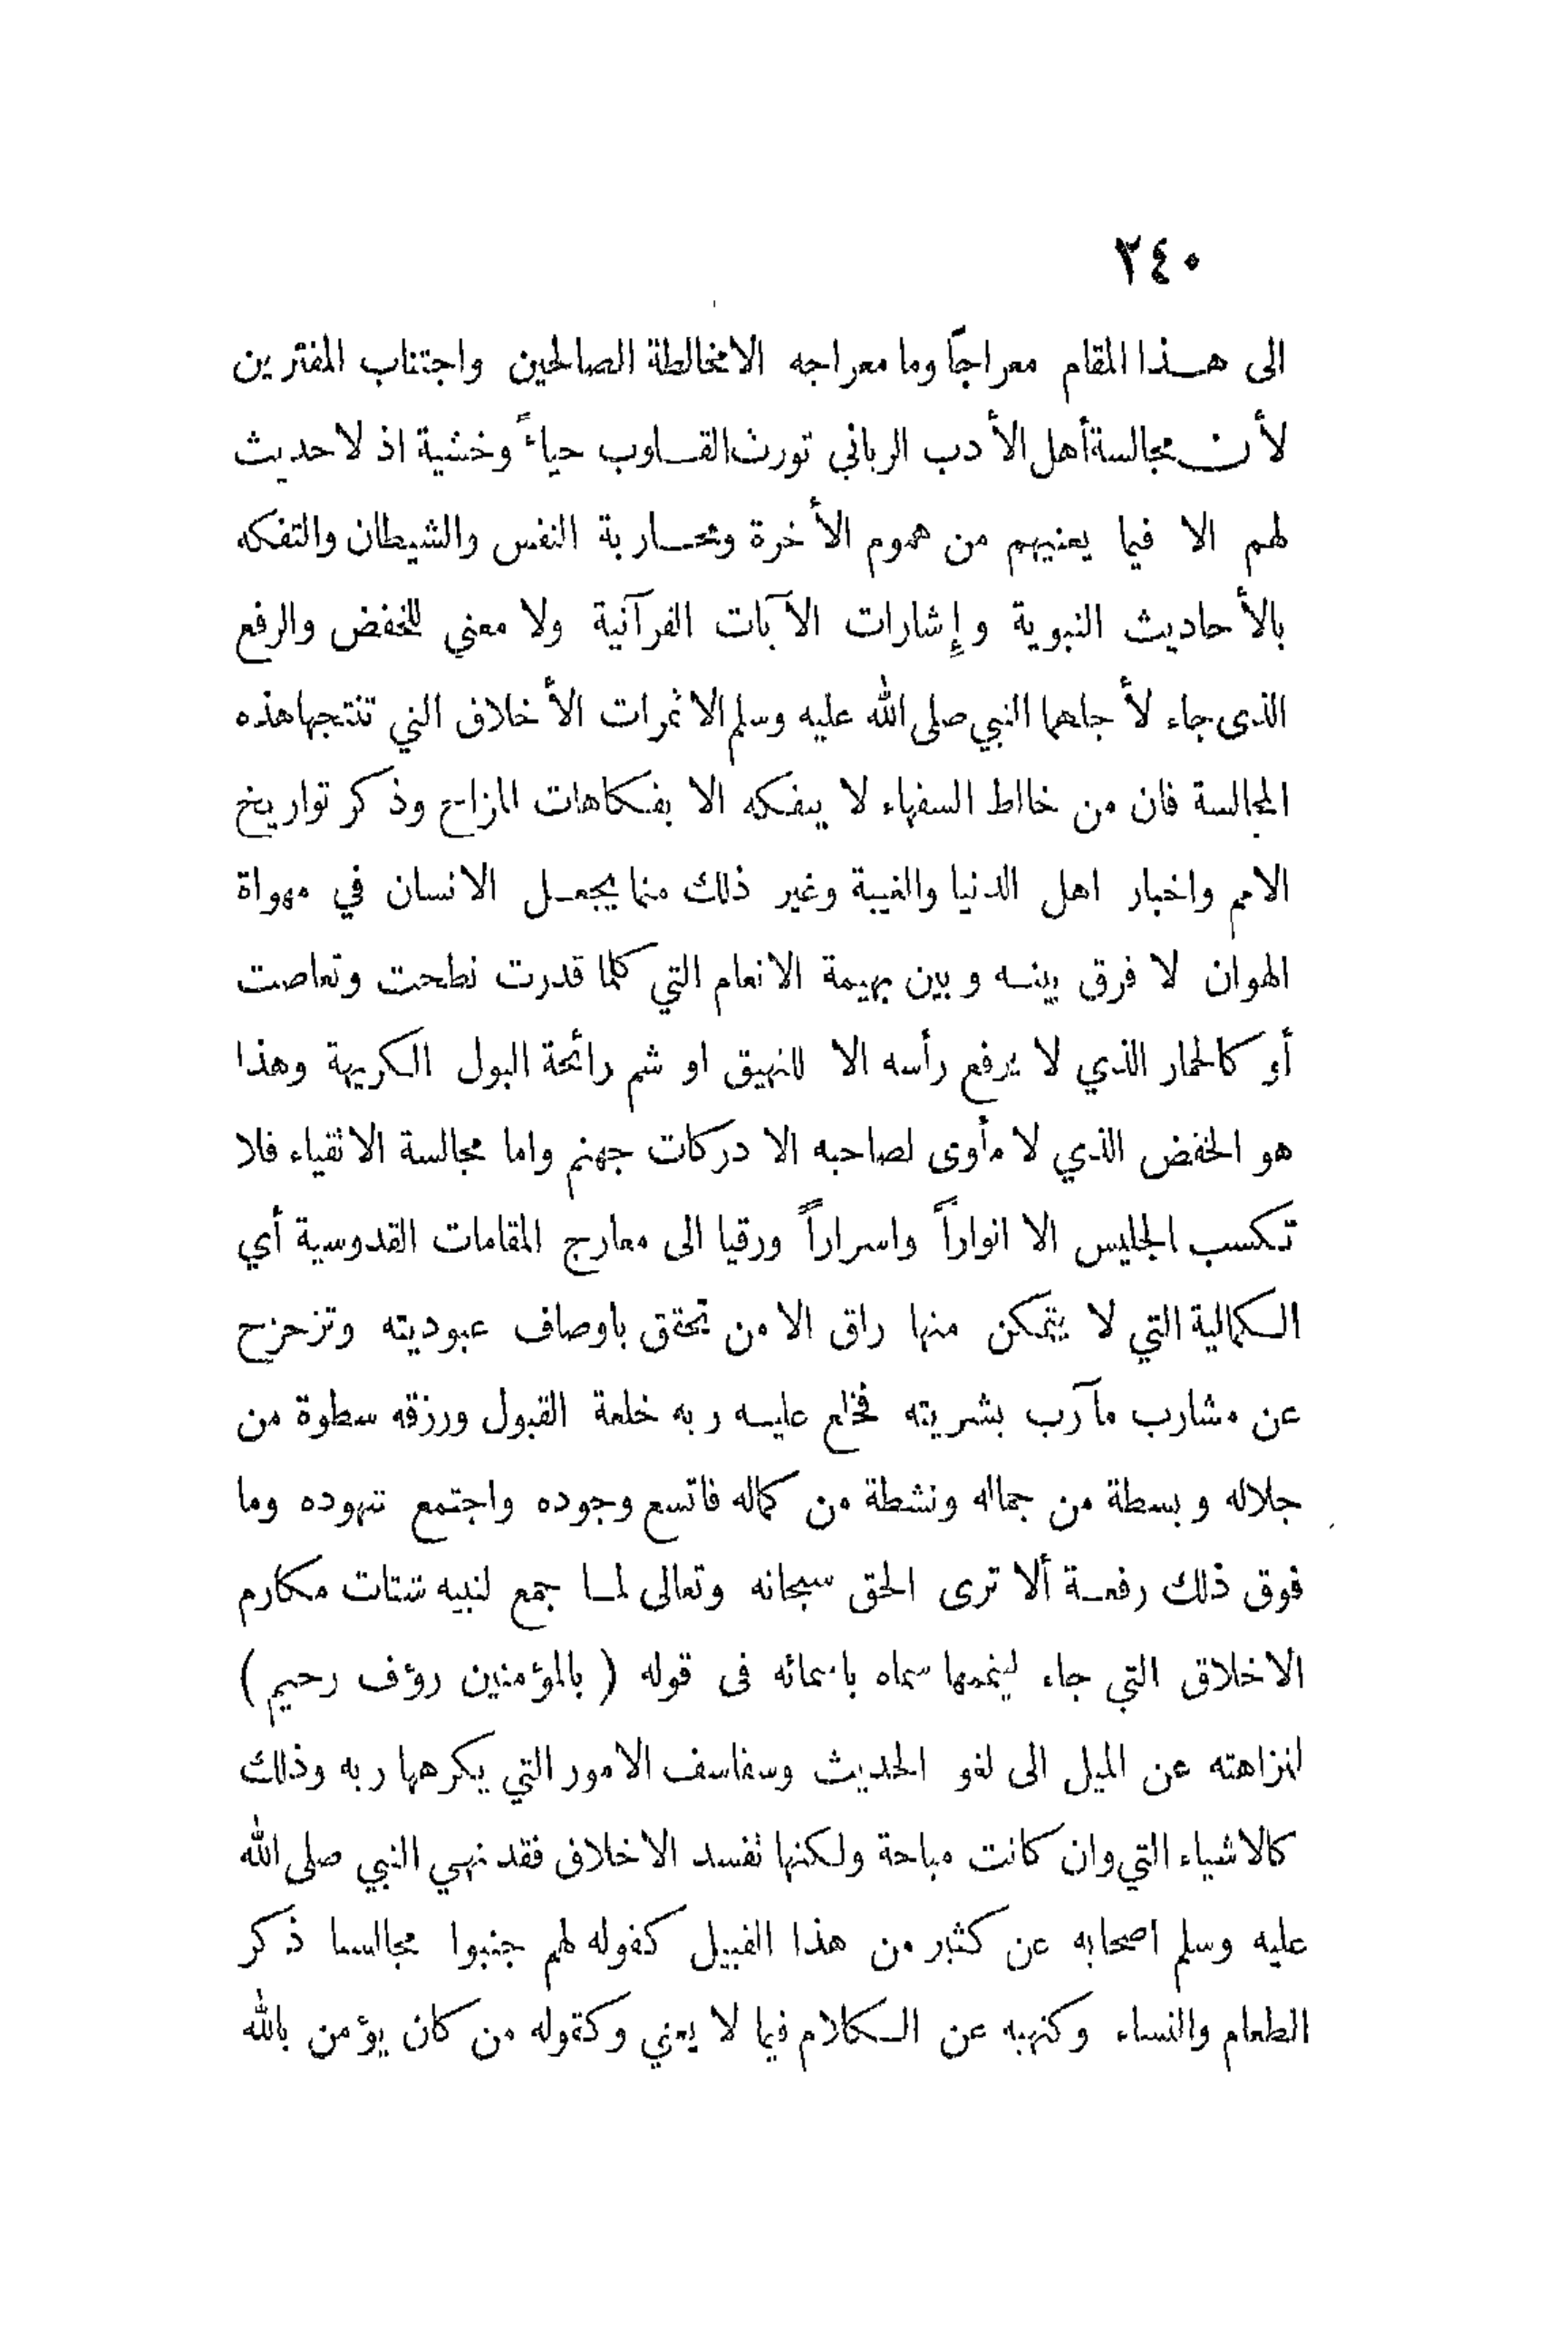 ٢٤٠
الى هـذا المقام معراجاً وما معراجه الا مخالطة الصالحين واجتناب المفترين
لأن مجالسة أهل الأدب الرباني تورث القـلوب حياءً وخشية اذ لا حديث
لهم الا فيما يعنيهم من هموم الأخرة ومحـاربة النفس والشيطان والتفكه
بالأحاديث النبوية وإشارات الآيات القرآنية ولا معني للخفض والرفع
الذى جاء لأجلهما النبي صلى الله عليه وسلم الا ثمرات الأخلاق التي تنتجها هذه
المجالسة فان من خالط السفهاء لا يتفكه الا بفكاهات المزاح وذكر تواريخ
الامم واخبار اهل الدنيا والغيبة وغير ذلك مما يجعـل الانسان في مهواة
الهوان لا فرق بينـه وبين بهيمة الانعام التي كلما قدرت نطحت وتعاصت
أو كالحمار الذي لا يرفع رأسه الا للنهيق او شم رائحة البول الكريهة وهذا
هو الخفض الذي لا مأوى لصاحبه الا دركات جهنم واما مجالسة الاتقياء فلا
تكسب الجليس الا انواراً واسراراً ورقيا الى معارج المقامات القدوسية أي
الكمالية التي لا يتمكن منها راق الا من تحقق باوصاف عبوديته وتزحزح
عن مشارب مآرب بشريته فخلع عليـه ربه خلعة القبول ورزقه سطوة من
جلاله وبسطة من جماله ونشطة من كماله فاتسع وجوده واجتمع شهوده وما
فوق ذلك رفعـة ألا ترى الحق سبحانه وتعالى لمـا جمع لنبيه شتات مكارم
الاخلاق التي جاء ليتممها سماه باسمائه فى قوله ( بالمؤمنين رؤف رحيم )
لنزاهته عن الميل الى لغو الحديث وسفاسف الامور التي يكرهها ربه وذلك
كالاشياء التي وان كانت مباحة ولكنها تفسد الاخلاق فقد نهي النبي صلى الله
عليه وسلم اصحابه عن كثير من هذا القبيل كقوله لهم جنبوا مجالسنا ذكر
الطعام والنساء وكنهيه عن الكلام فيما لا يعني وكقوله من كان يؤمن بالله